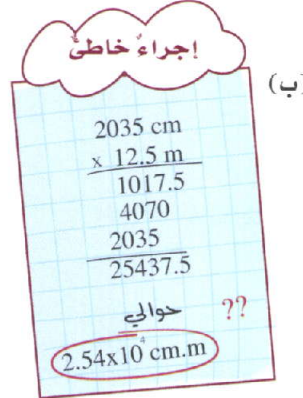 إجراءٌ خاطئٌ
(ب)
2035 cm
x 12.5 m
1017.5
4070
2035
25437.5
حوالي ??
2.54x10⁴ cm.m